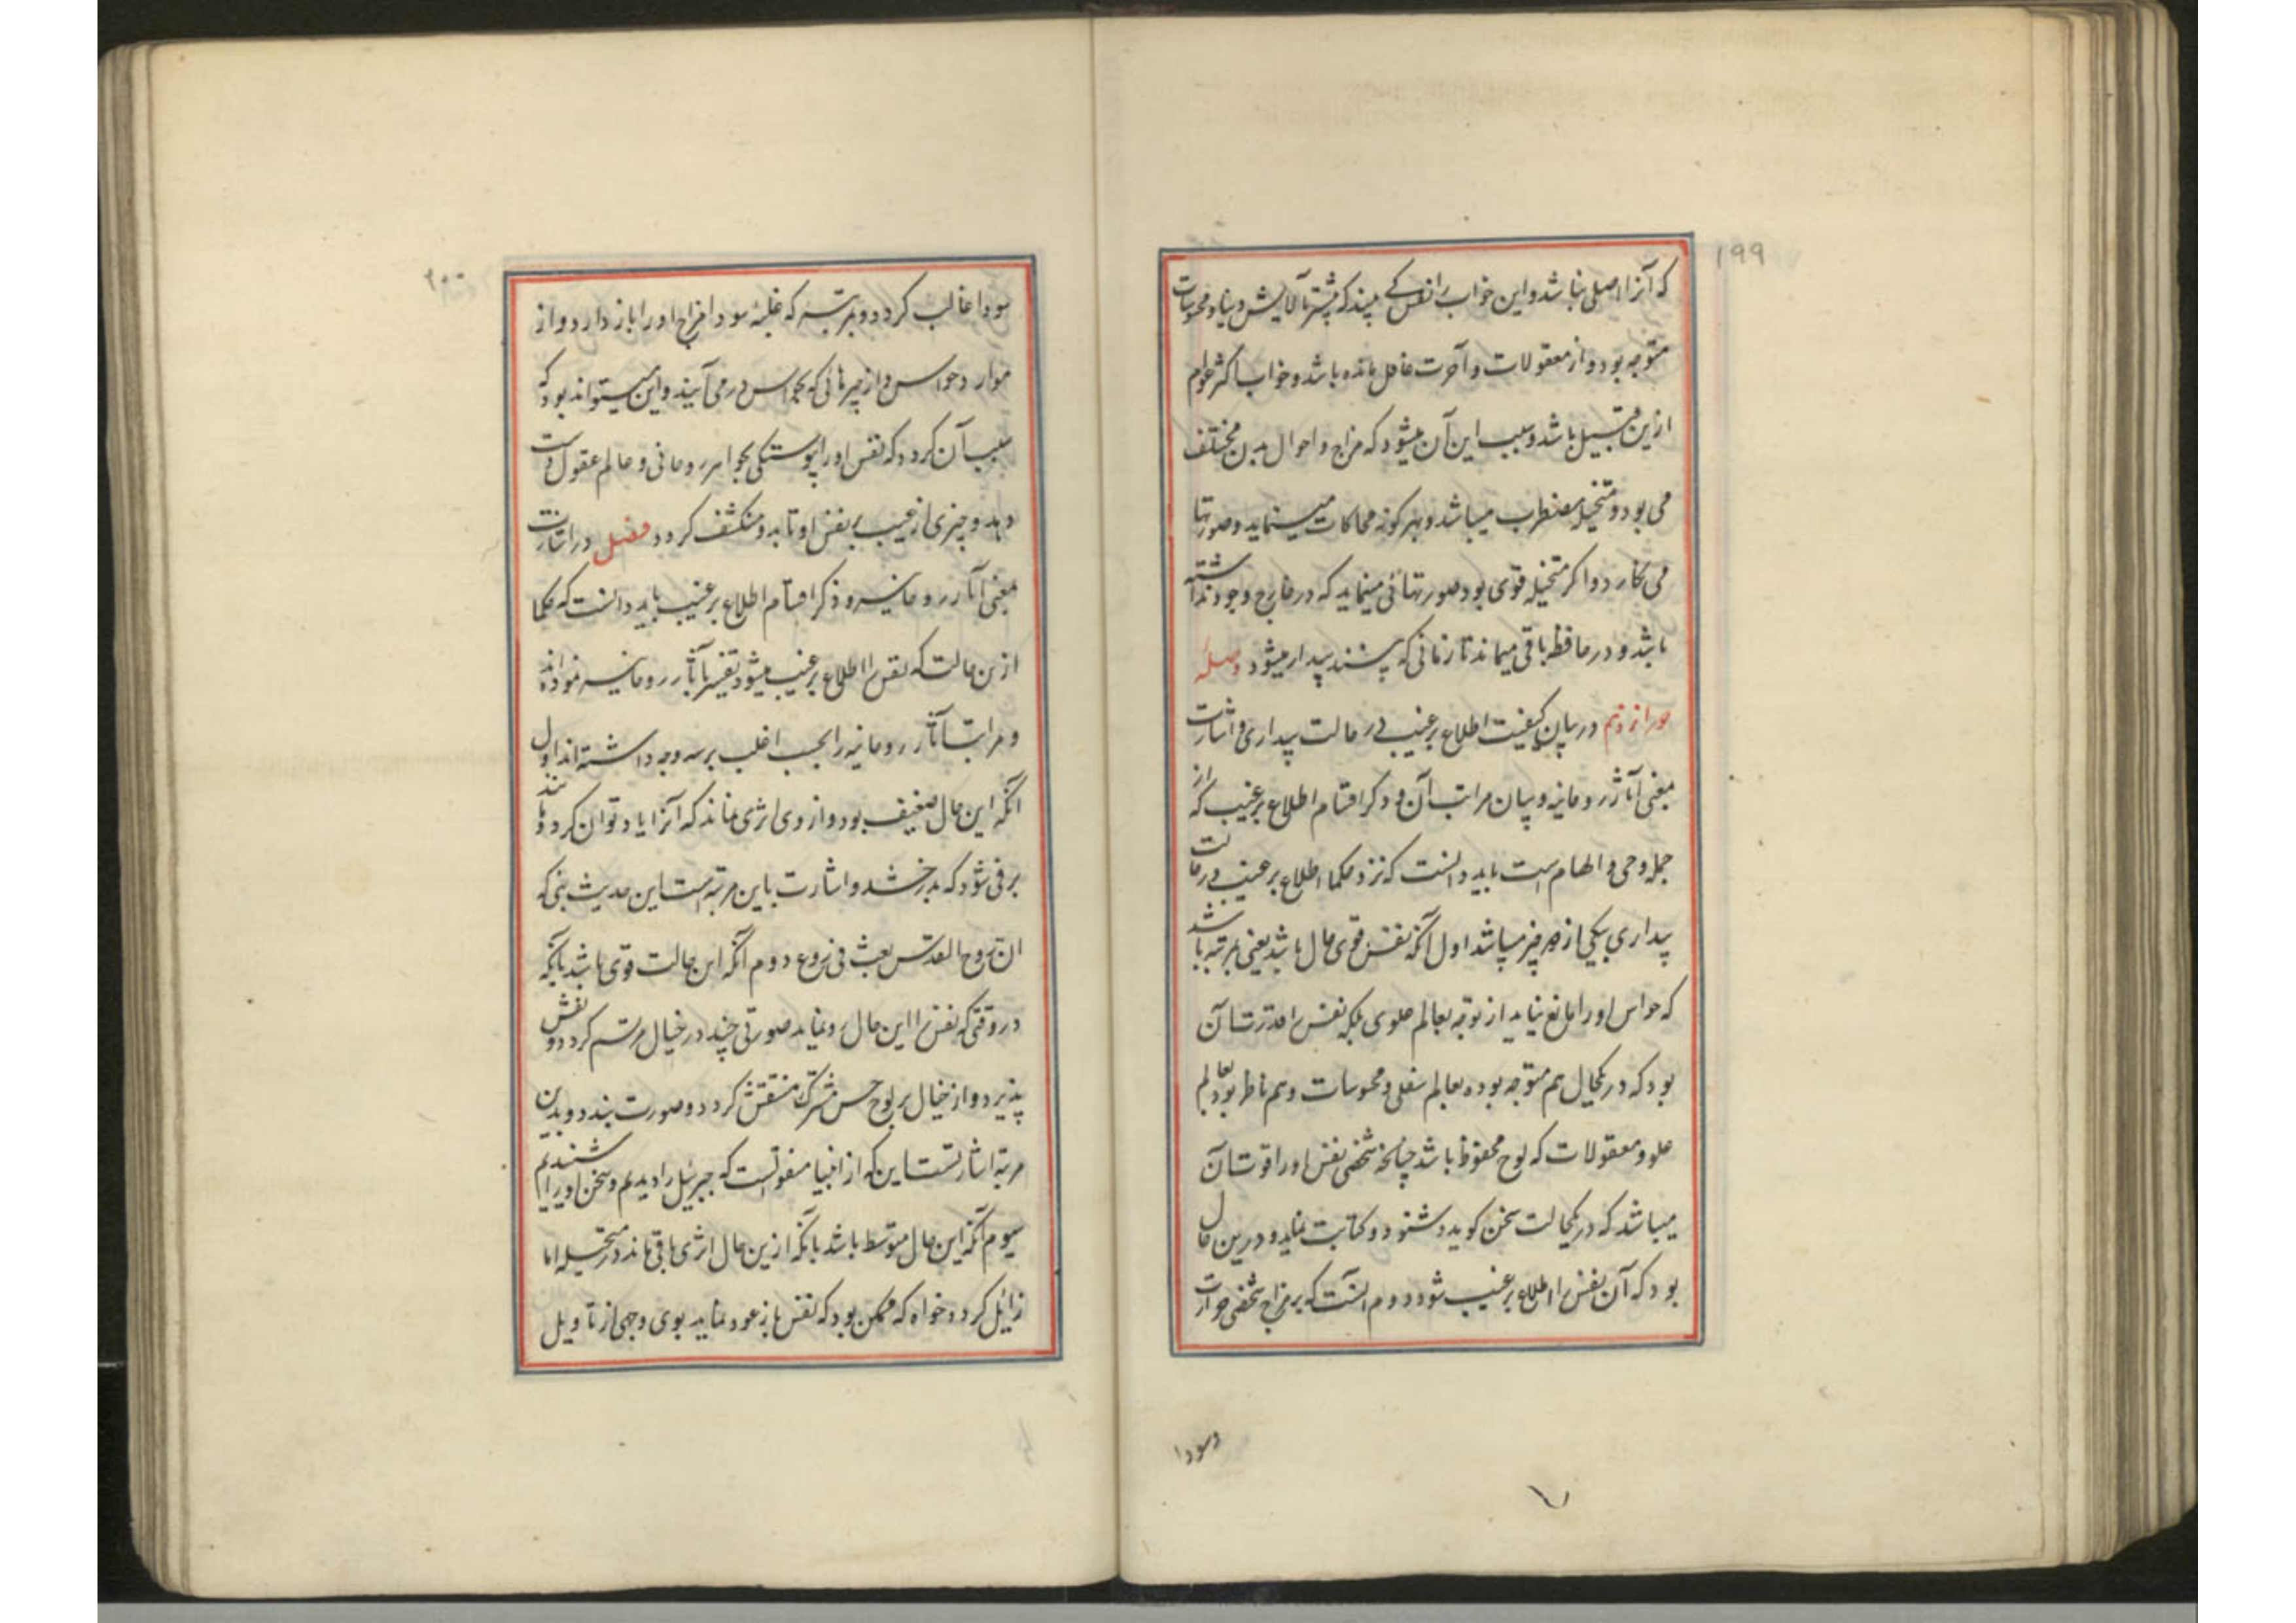 ۱۹۹
که آنرا اصلی نباشد و این خواب را نفس کسی بیند که پیشتر بآلایش دنیا و محسوسات
متوجه بود و از معقولات و آخرت غافل مانده باشد و خواب اکثر عوام
ازین قبیل باشد و سبب این آن میشود که مزاج و احوال بدن مختلف
می بود و متخیله مضطرب میباشد و بهر گونه محاکات مینماید و صورتها
می نگارد و اگر متخیله قوی بود صورتهائی مینماید که در خارج وجود نداشته
باشد و در حافظه باقی میماند تا زمانی که بیدار میشود وصلهٔ
در بیان کیفیت اطلاع بر غیب در حالت بیداری و اشارت
معنی آثار روحانیه و بیان مراتب آن و ذکر اقسام اطلاع بر غیب که از
جمله وحی و الهام است باید دانست که نزد حکما اطلاع بر غیب در حالت
بیداری بیکی از دو چیز میباشد اول آنکه نفس قوی حال باشد یعنی بمرتبه باشد
که حواس او را مانع نیاید از توجه بعالم علوی بلکه نفس را قدرت آن
بود که در یکحال هم متوجه بوده بعالم سفلی و محسوسات و هم ناظر بود بعالم
علو و معقولات که لوح محفوظ باشد چنانچه شخصی نفس او را قوت آن
میباشد که در یکحالت سخن گوید و شنود و کتابت نماید و درین حال
بود که آن نفس را اطلاع بر غیب شود دوم آنست که بر مزاج شخصی حرارت
وسودا
۲۰۰
سودا غالب گردد و بمرتبه که غلبهٔ سودا مزاج او را باز دارد و از
موارد حواس و از چیرهائی که بحواس در می آیند و این میتواند بود که
سبب آن گردد که نفس او را پیوستگی بجواهر روحانی و عالم عقول دست
دهد و چیزی از غیب بر نفس او تابد و منکشف گردد فصل در اشارت
معنی آثار روحانیه و ذکر اقسام اطلاع بر غیب باید دانست که حکما
ازین حالت که نفس را اطلاع بر غیب میشود تفسیر بآثار روحانیه نموده اند
و مراتب آثار روحانیه را بحسب اغلب بر سه وجه داشته اند اول
آنکه این حال ضعیف بود و از وی اثری نماند که آنرا یاد توان کرد و مانند
برقی شود که بدرخشد و اشارت باین مرتبه است این حدیث نبی که
ان روح القدس نفث فی روعی دوم آنکه این حالت قوی باشد بآنکه
در وقتی که نفس را این حال رو نماید صورتی چند در خیال مرتسم گردد و نقش
پذیرد و از خیال بر لوح حس مشترک منتقش گردد و صورت بندد و بدین
مرتبه اشارتست این که از انبیا منقولست که جبرئیل را دیدیم و سخن او را شنیدیم
سیوم آنکه این حال متوسط باشد بآنکه ازین حال اثری باقی ماند در متخیله اما
زایل گردد خواه که ممکن بود که نفس باز عود نماید بوی وجهی از تاویل